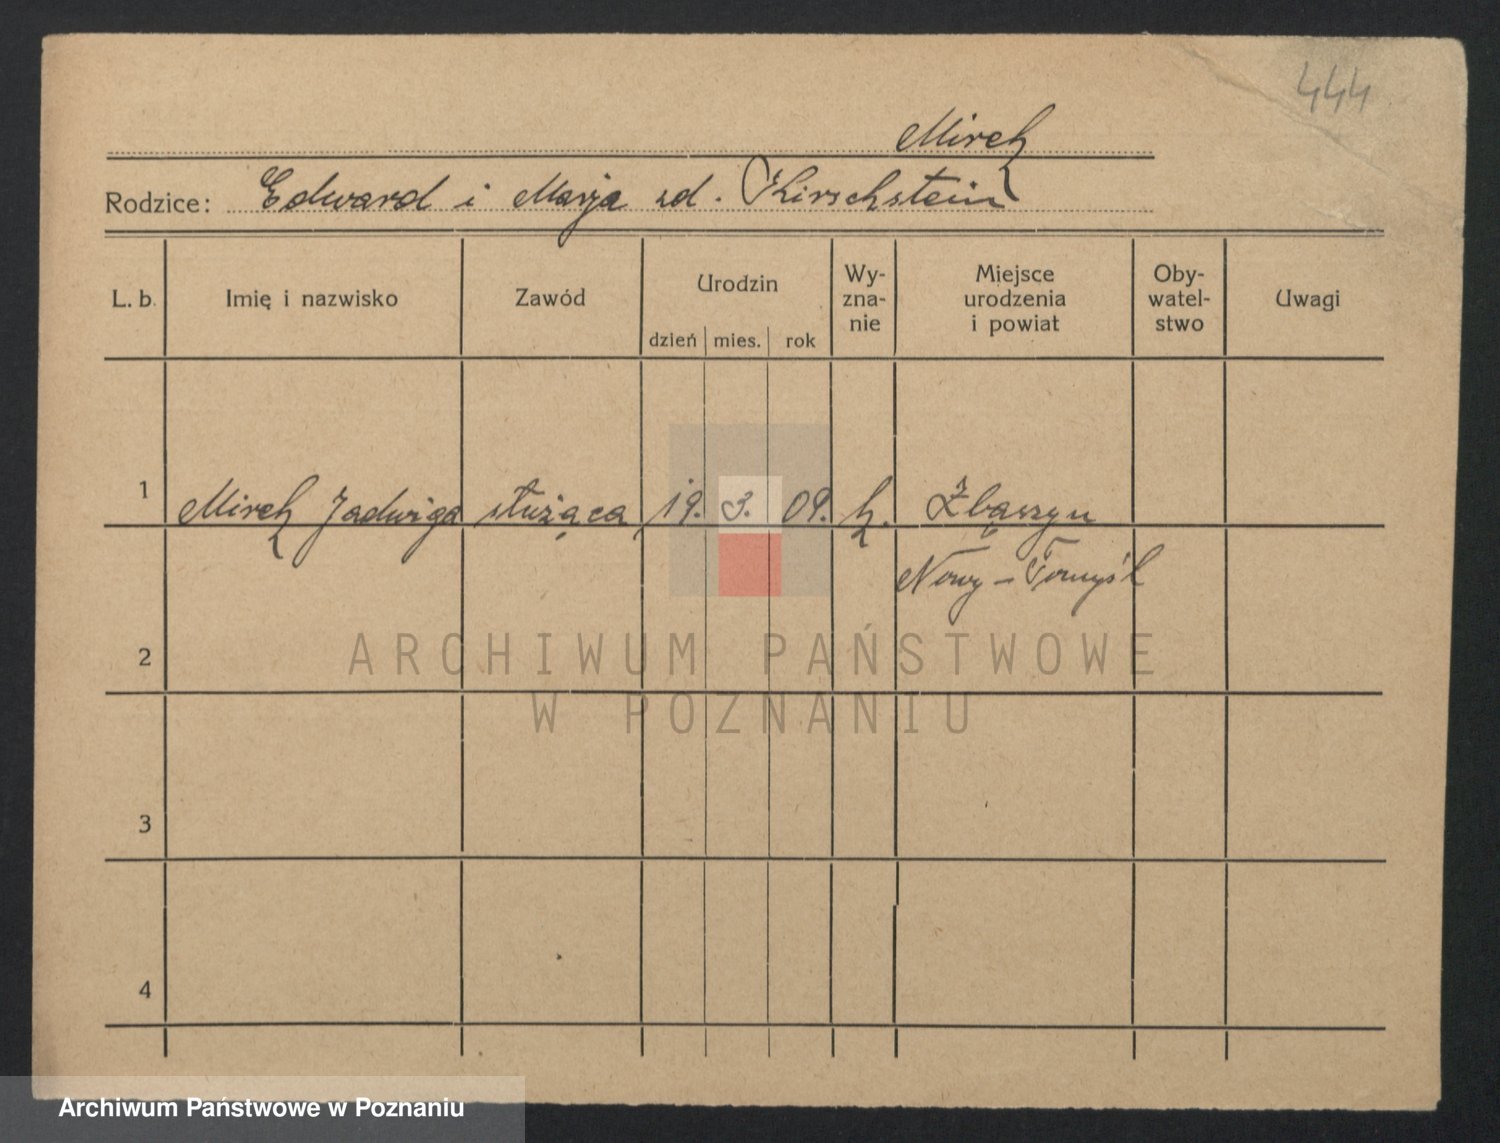 444
Mirek
Rodzice: Edward i Marja zd. Kirschstein
L. b. Imię i nazwisko Zawód Urodzin dzień mies. rok Wy-zna-nie Miejsce urodzenia i powiat Oby-watel-stwo Uwagi
1 Mirek Jadwiga służąca 19. 3. 09. k. Zbąszyn
Nowy-Tomyśl
2
ARCHIWUM PAŃSTWOWE
W POZNANIU
3
4
Archiwum Państwowe w Poznaniu